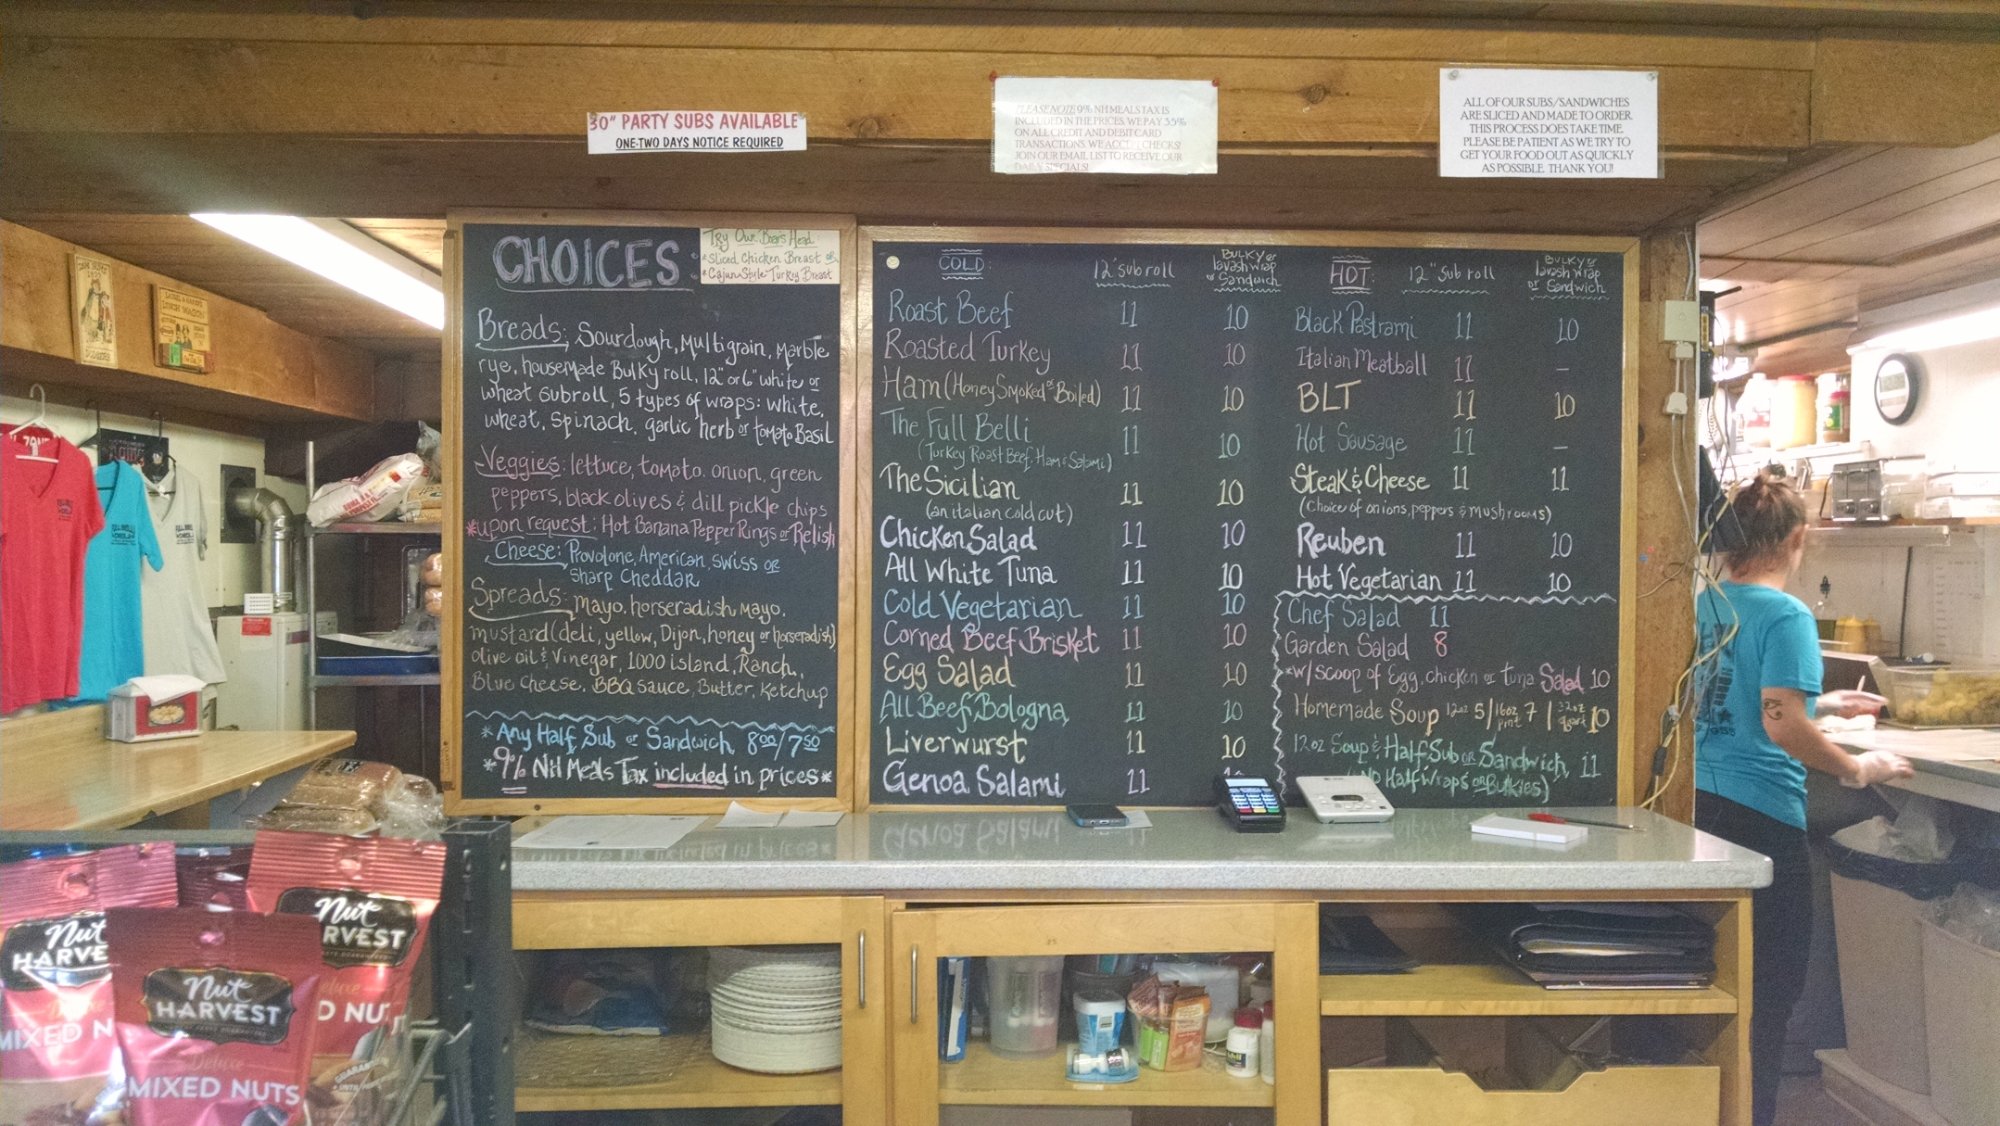 30" PARTY SUBS AVAILABLE
ONE-TWO DAYS NOTICE REQUIRED
PLEASE NOTE: 9% NH MEALS TAX IS
INCLUDED IN THE PRICES. WE PAY 3.5%
ON ALL CREDIT AND DEBIT CARD
TRANSACTIONS. WE ACCEPT CHECKS!
JOIN OUR EMAIL LIST TO RECEIVE OUR
DAILY SPECIALS!
ALL OF OUR SUBS/SANDWICHES
ARE SLICED AND MADE TO ORDER.
THIS PROCESS DOES TAKE TIME.
PLEASE BE PATIENT AS WE TRY TO
GET YOUR FOOD OUT AS QUICKLY
AS POSSIBLE. THANK YOU!
CHOICES:
Try Our Boars Head
*Sliced Chicken Breast or
*Cajun Style Turkey Breast
Breads: Sourdough, Multigrain, Marble
rye, housemade Bulky roll, 12" or 6" white or
wheat subroll, 5 types of wraps: white,
wheat, spinach, garlic herb or tomato Basil
Veggies: lettuce, tomato, onion, green
peppers, black olives & dill pickle chips
*upon request: Hot Banana Pepper Rings or Relish
Cheese: Provolone, American, swiss or
sharp cheddar
Spreads: mayo, horseradish mayo,
mustard (deli, yellow, Dijon, honey or horseradish)
olive oil & Vinegar, 1000 island, Ranch,
Blue cheese, BBQ sauce, Butter, Ketchup
*Any Half Sub or Sandwich 8.00/7.50
*9% NH Meals Tax included in prices*
COLD: 12" sub roll BULKY or
lavash wrap
or Sandwich
Roast Beef 11 10
Roasted Turkey 11 10
Ham (Honey Smoked or Boiled) 11 10
The Full Belli 11 10
(Turkey Roast Beef, Ham & Salami)
The Sicilian 11 10
(an italian cold cut)
Chicken Salad 11 10
All White Tuna 11 10
Cold Vegetarian 11 10
Corned Beef Brisket 11 10
Egg Salad 11 10
All Beef Bologna 11 10
Liverwurst 11 10
Genoa Salami 11
HOT: 12" sub roll BULKY or
lavash wrap
or Sandwich
Black Pastrami 11 10
Italian Meatball 11 –
BLT 11 10
Hot Sausage 11 –
Steak & Cheese 11 11
(choice of onions, peppers & mushrooms)
Reuben 11 10
Hot Vegetarian 11 10
Chef Salad 11
Garden Salad 8
*w/scoop of Egg, chicken or tuna Salad 10
Homemade Soup 12oz 5 / 16oz pint 7 / 32oz quart 10
12oz Soup & Half Sub or Sandwich 11
(No Half Wraps or Bulkies)
Nut
HARVEST
MIXED N
Nut
HARVEST
Deluxe
MIXED NUTS
Nut
RVEST
D NU